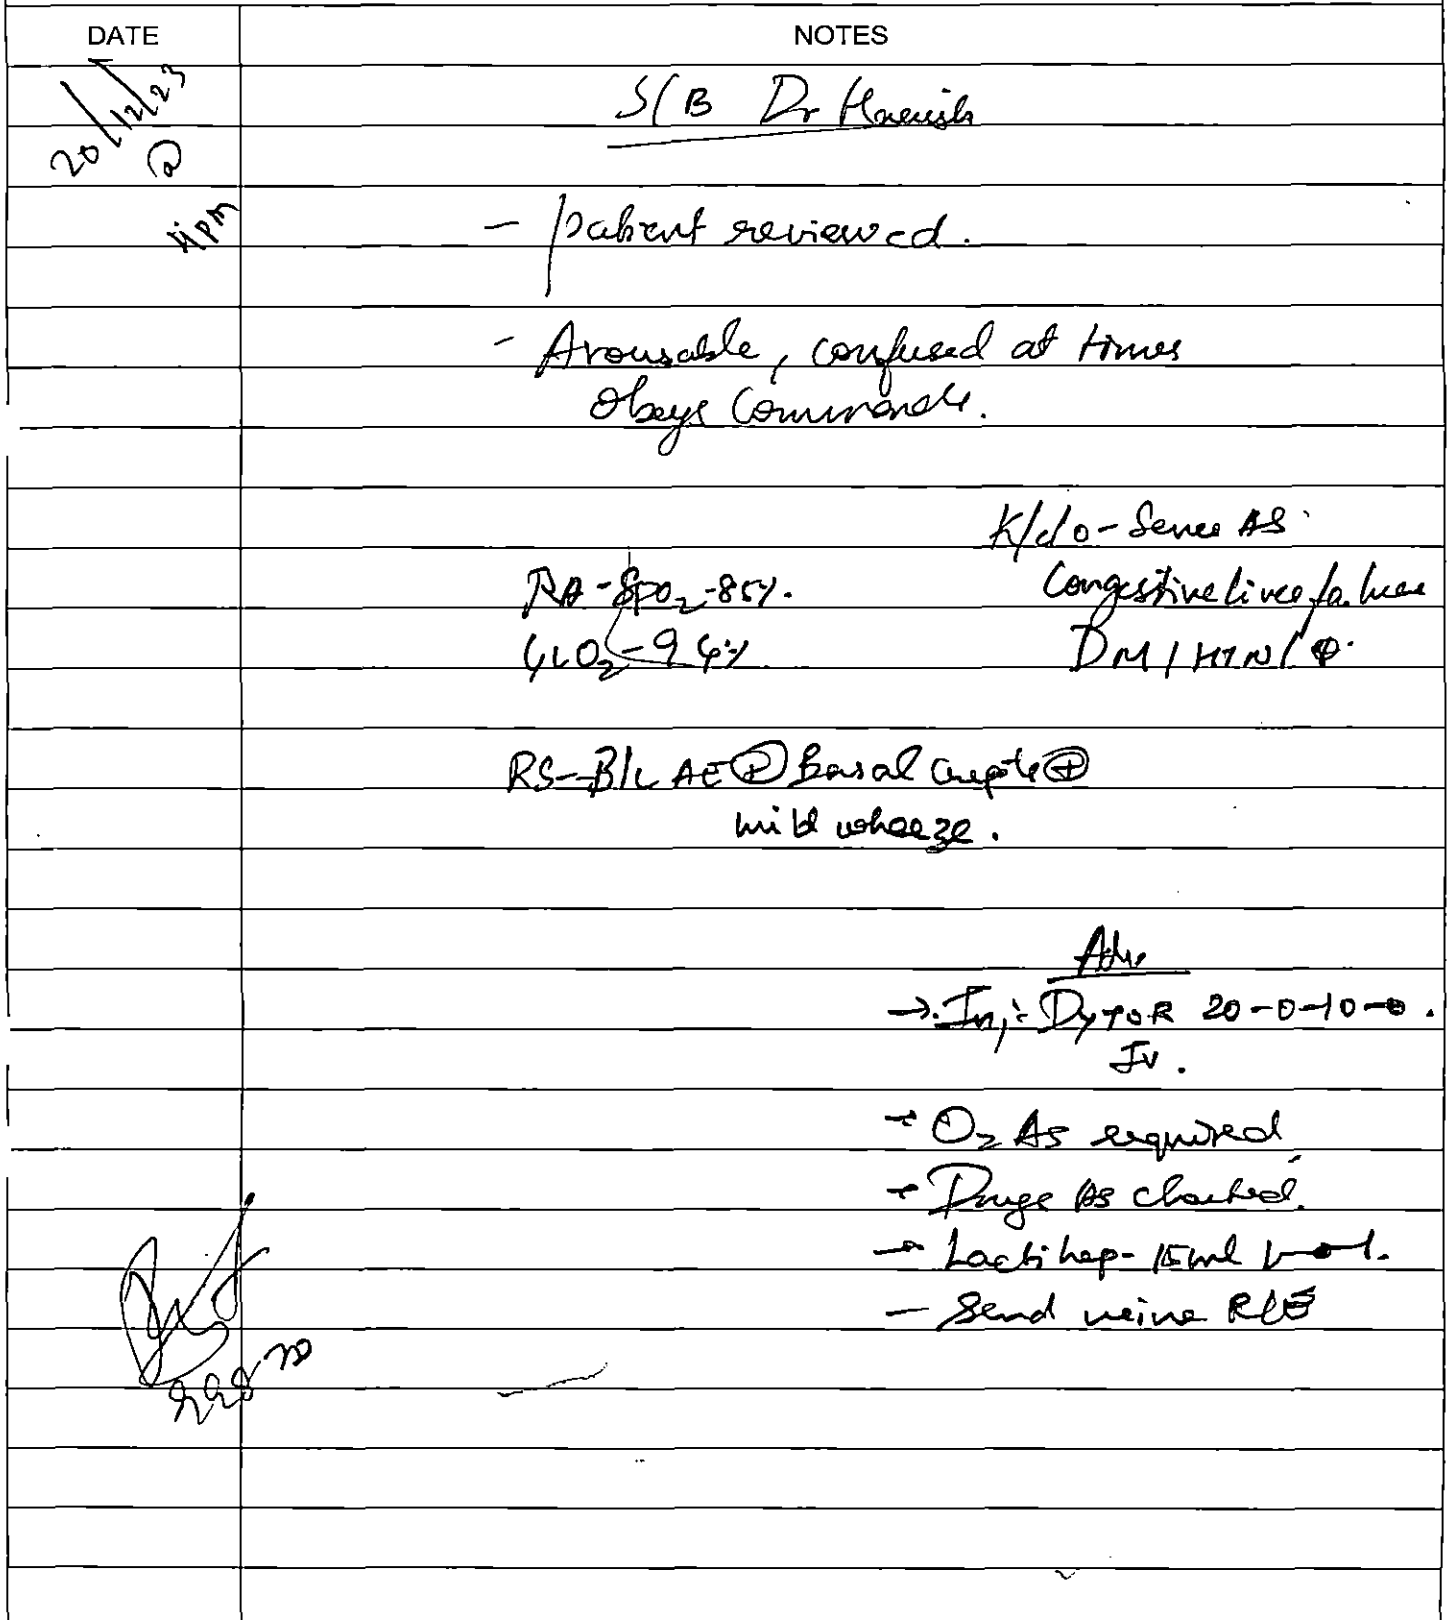 DATE NOTES
20/12/23 S/B Dr Harish
@
4pm - patient reviewed.
- Arousable, confused at times
Obeys Commands.
K/c/o - Severe AS
RA - SpO2 - 85%. Congestive liver failure
4L O2 - 94% DM / HTN /
RS - B/L AE ⊕ Basal crepts ⊕
mild wheeze.
Adv
→ Inj: DYTOR 20-0-10-0.
IV.
→ O2 As required
→ Drugs As charted.
→ Lactihep - 15ml
- Send urine R/E